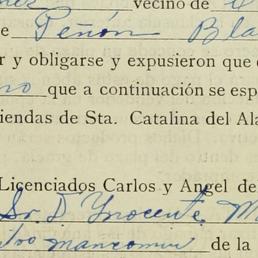 vecino de
e Peñón Bla
r y obligarse y expusieron que
no que a continuación se esp
iendas de Sta. Catalina del Ala
Licenciados Carlos y Angel de
Sr. D. Ynocente M
mancomun de la